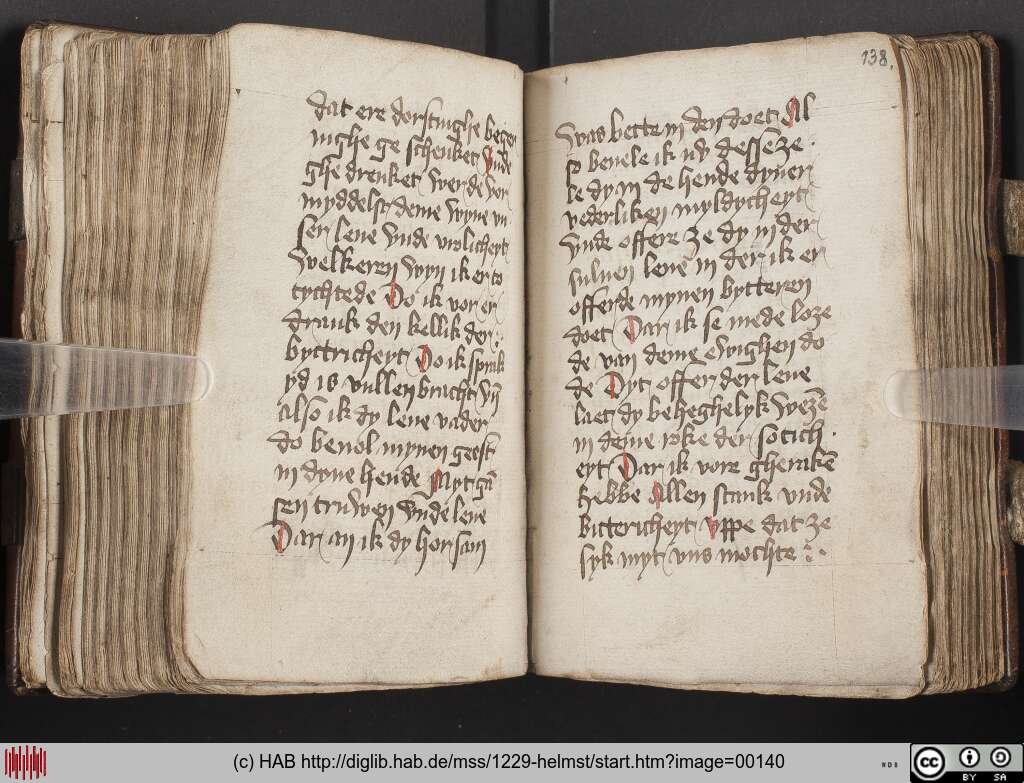 dat ere dorstinghe beger
inghe ge schenket Unde
ghe drenket werde vor
myddelst deme wyne vn
ser leue vnde vrolicheyt
welkeren wyn ik er to
tychtede Do ik vor er
drank den kellik der
byttricheyt Do ik sprak
yd is vullenbracht Vn̄
also ik dy leue vader
do beuol mynen geest
in dyne hende Myt gā
sen truwen vnde leue
Dar an ik dy horsam
138.
was bette in den doet Al
so beuele ik nv desse ze
le dy in de hende dyner
vederliken myldycheyt
vnde offere ze dy in der
suluen leue in der ik er
offerde mynen bytteren
doet Dar ik se mede loze
de van deme ewighen do
de Dyt offer der leue
laet dy beheghelyk wezē
in deme roke der sotich
eyt Dar ik vore gheraken
hebbe Allen stank vnde
bittericheyt vppe dat ze
syk myt vns mochte
(c) HAB http://diglib.hab.de/mss/1229-helmst/start.htm?image=00140
WDB
cc BY SA